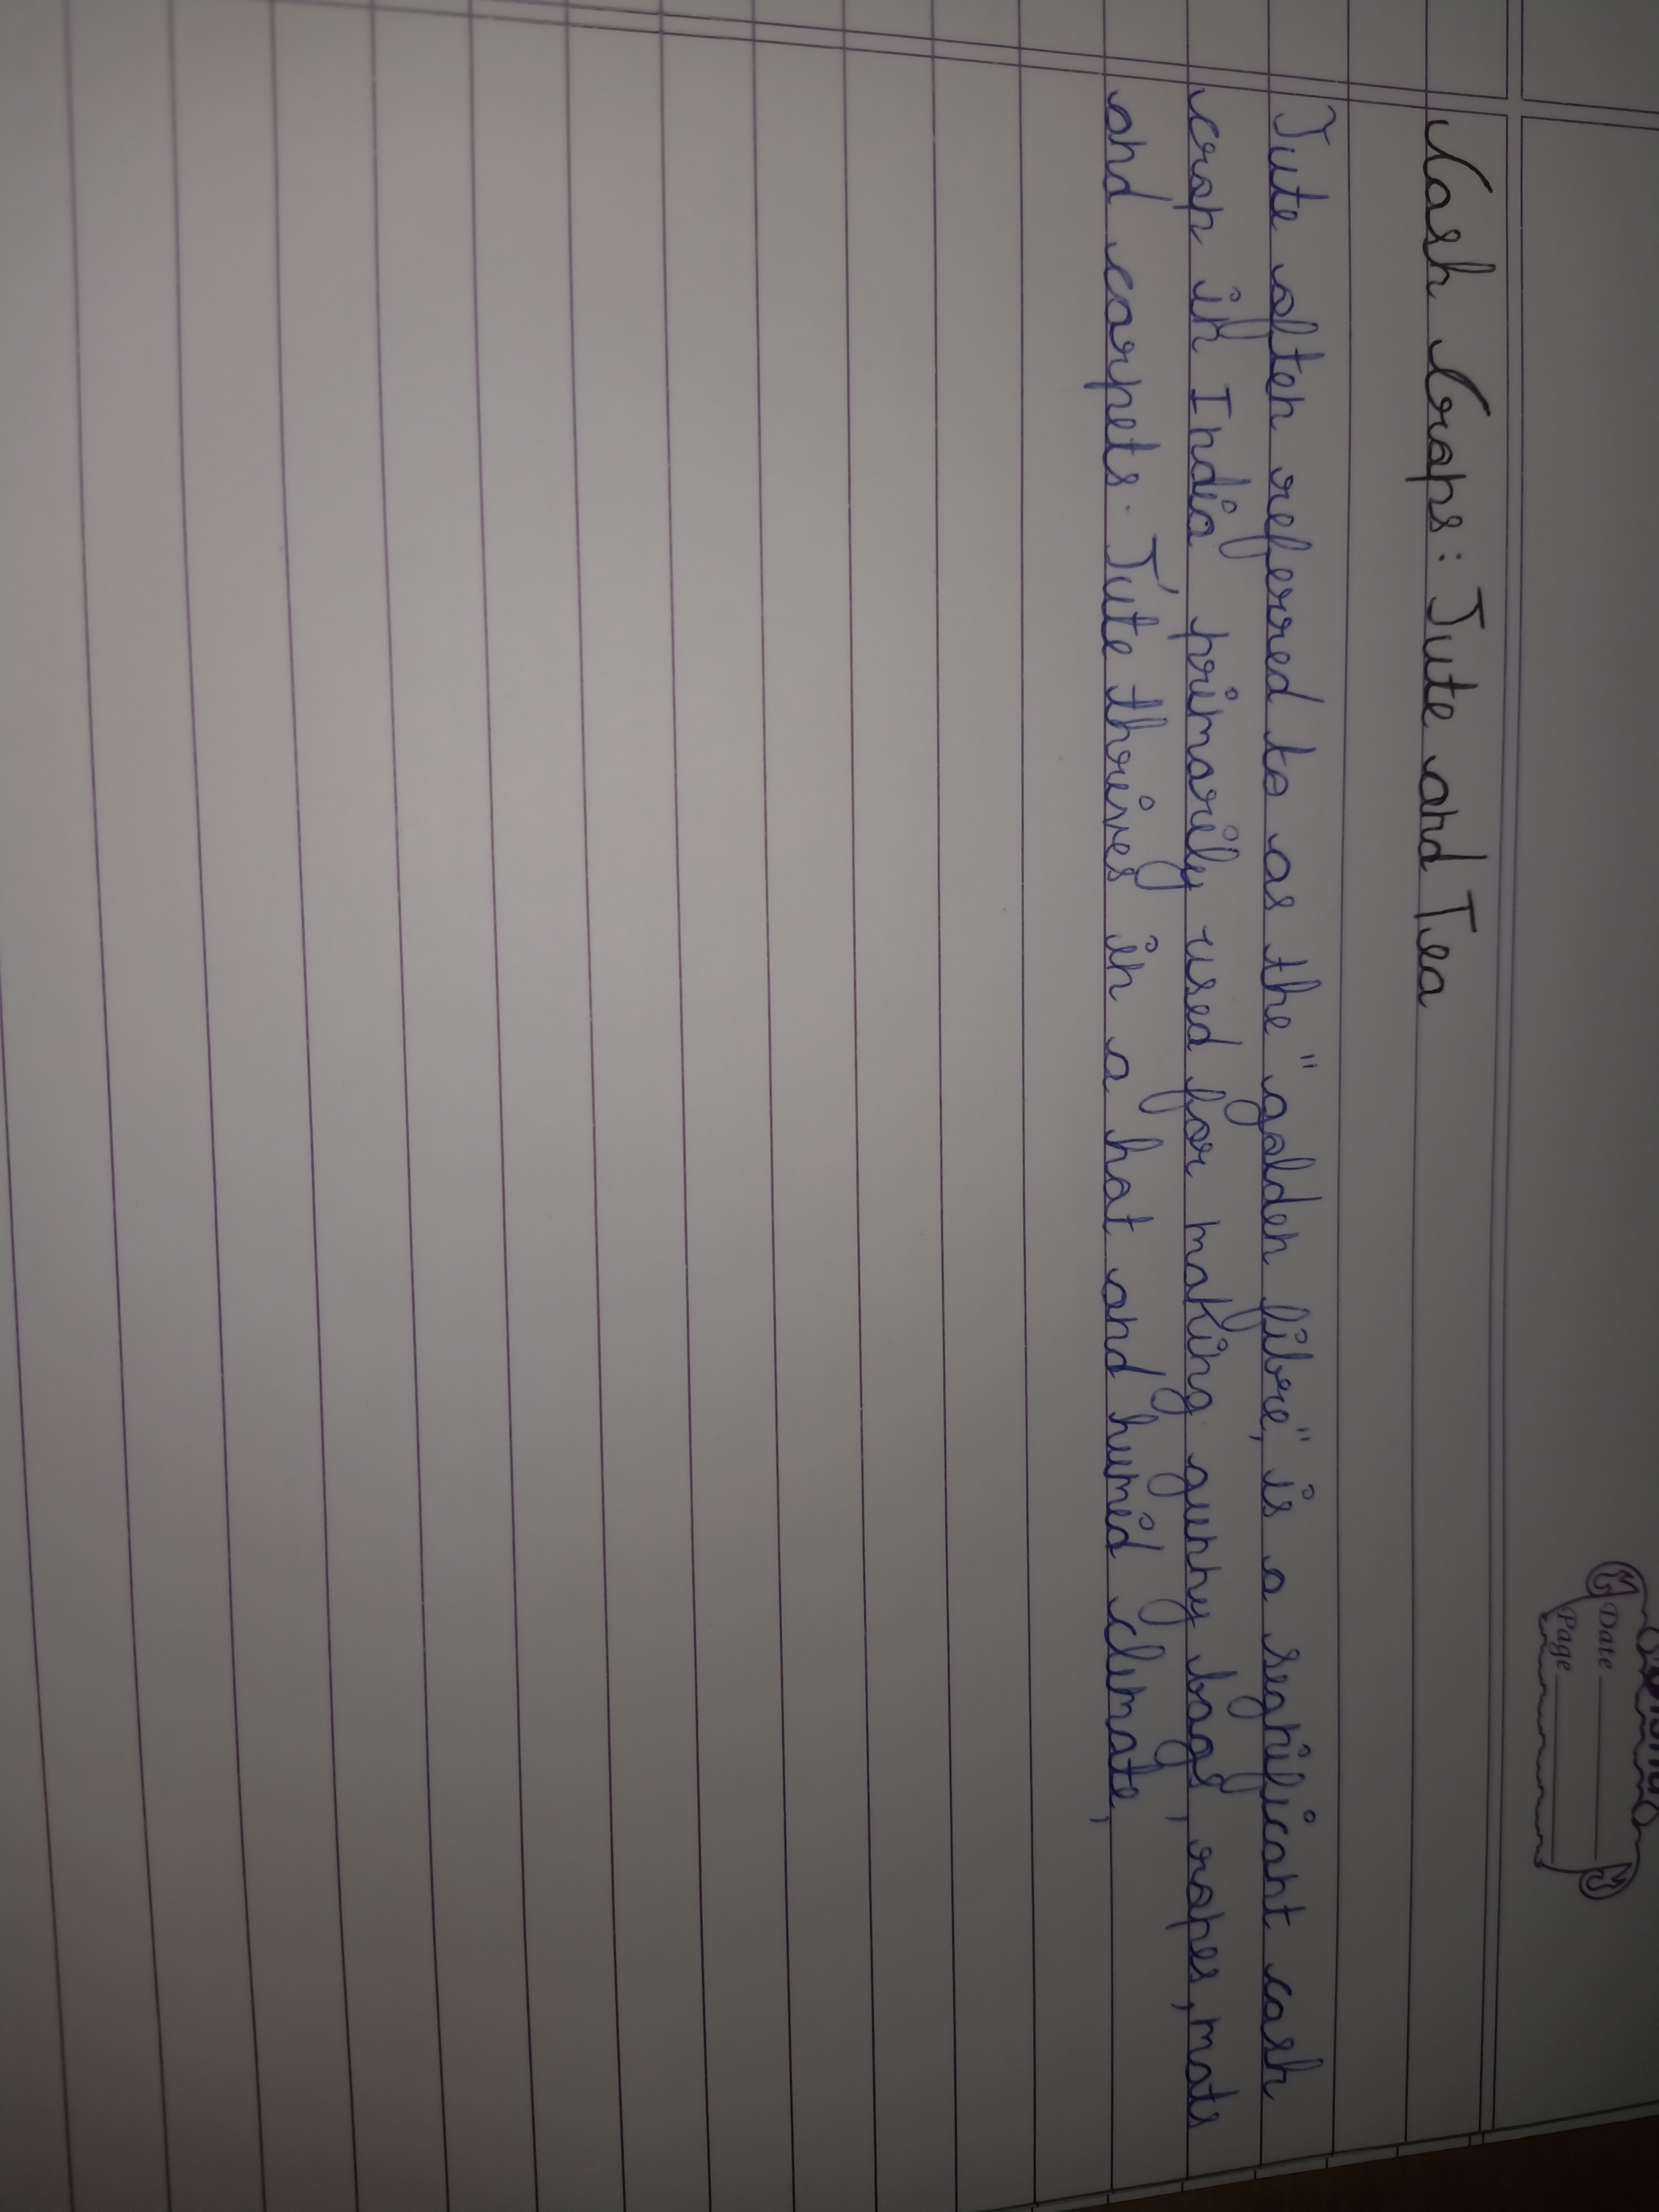 Date
Page
Cash Crops: Jute and Tea
Jute often referred to as the "golden fibre," is a significant cash
crop in India primarily used for making gunny bags, ropes, mats
and carpets. Jute thrives in a hot and humid climate,